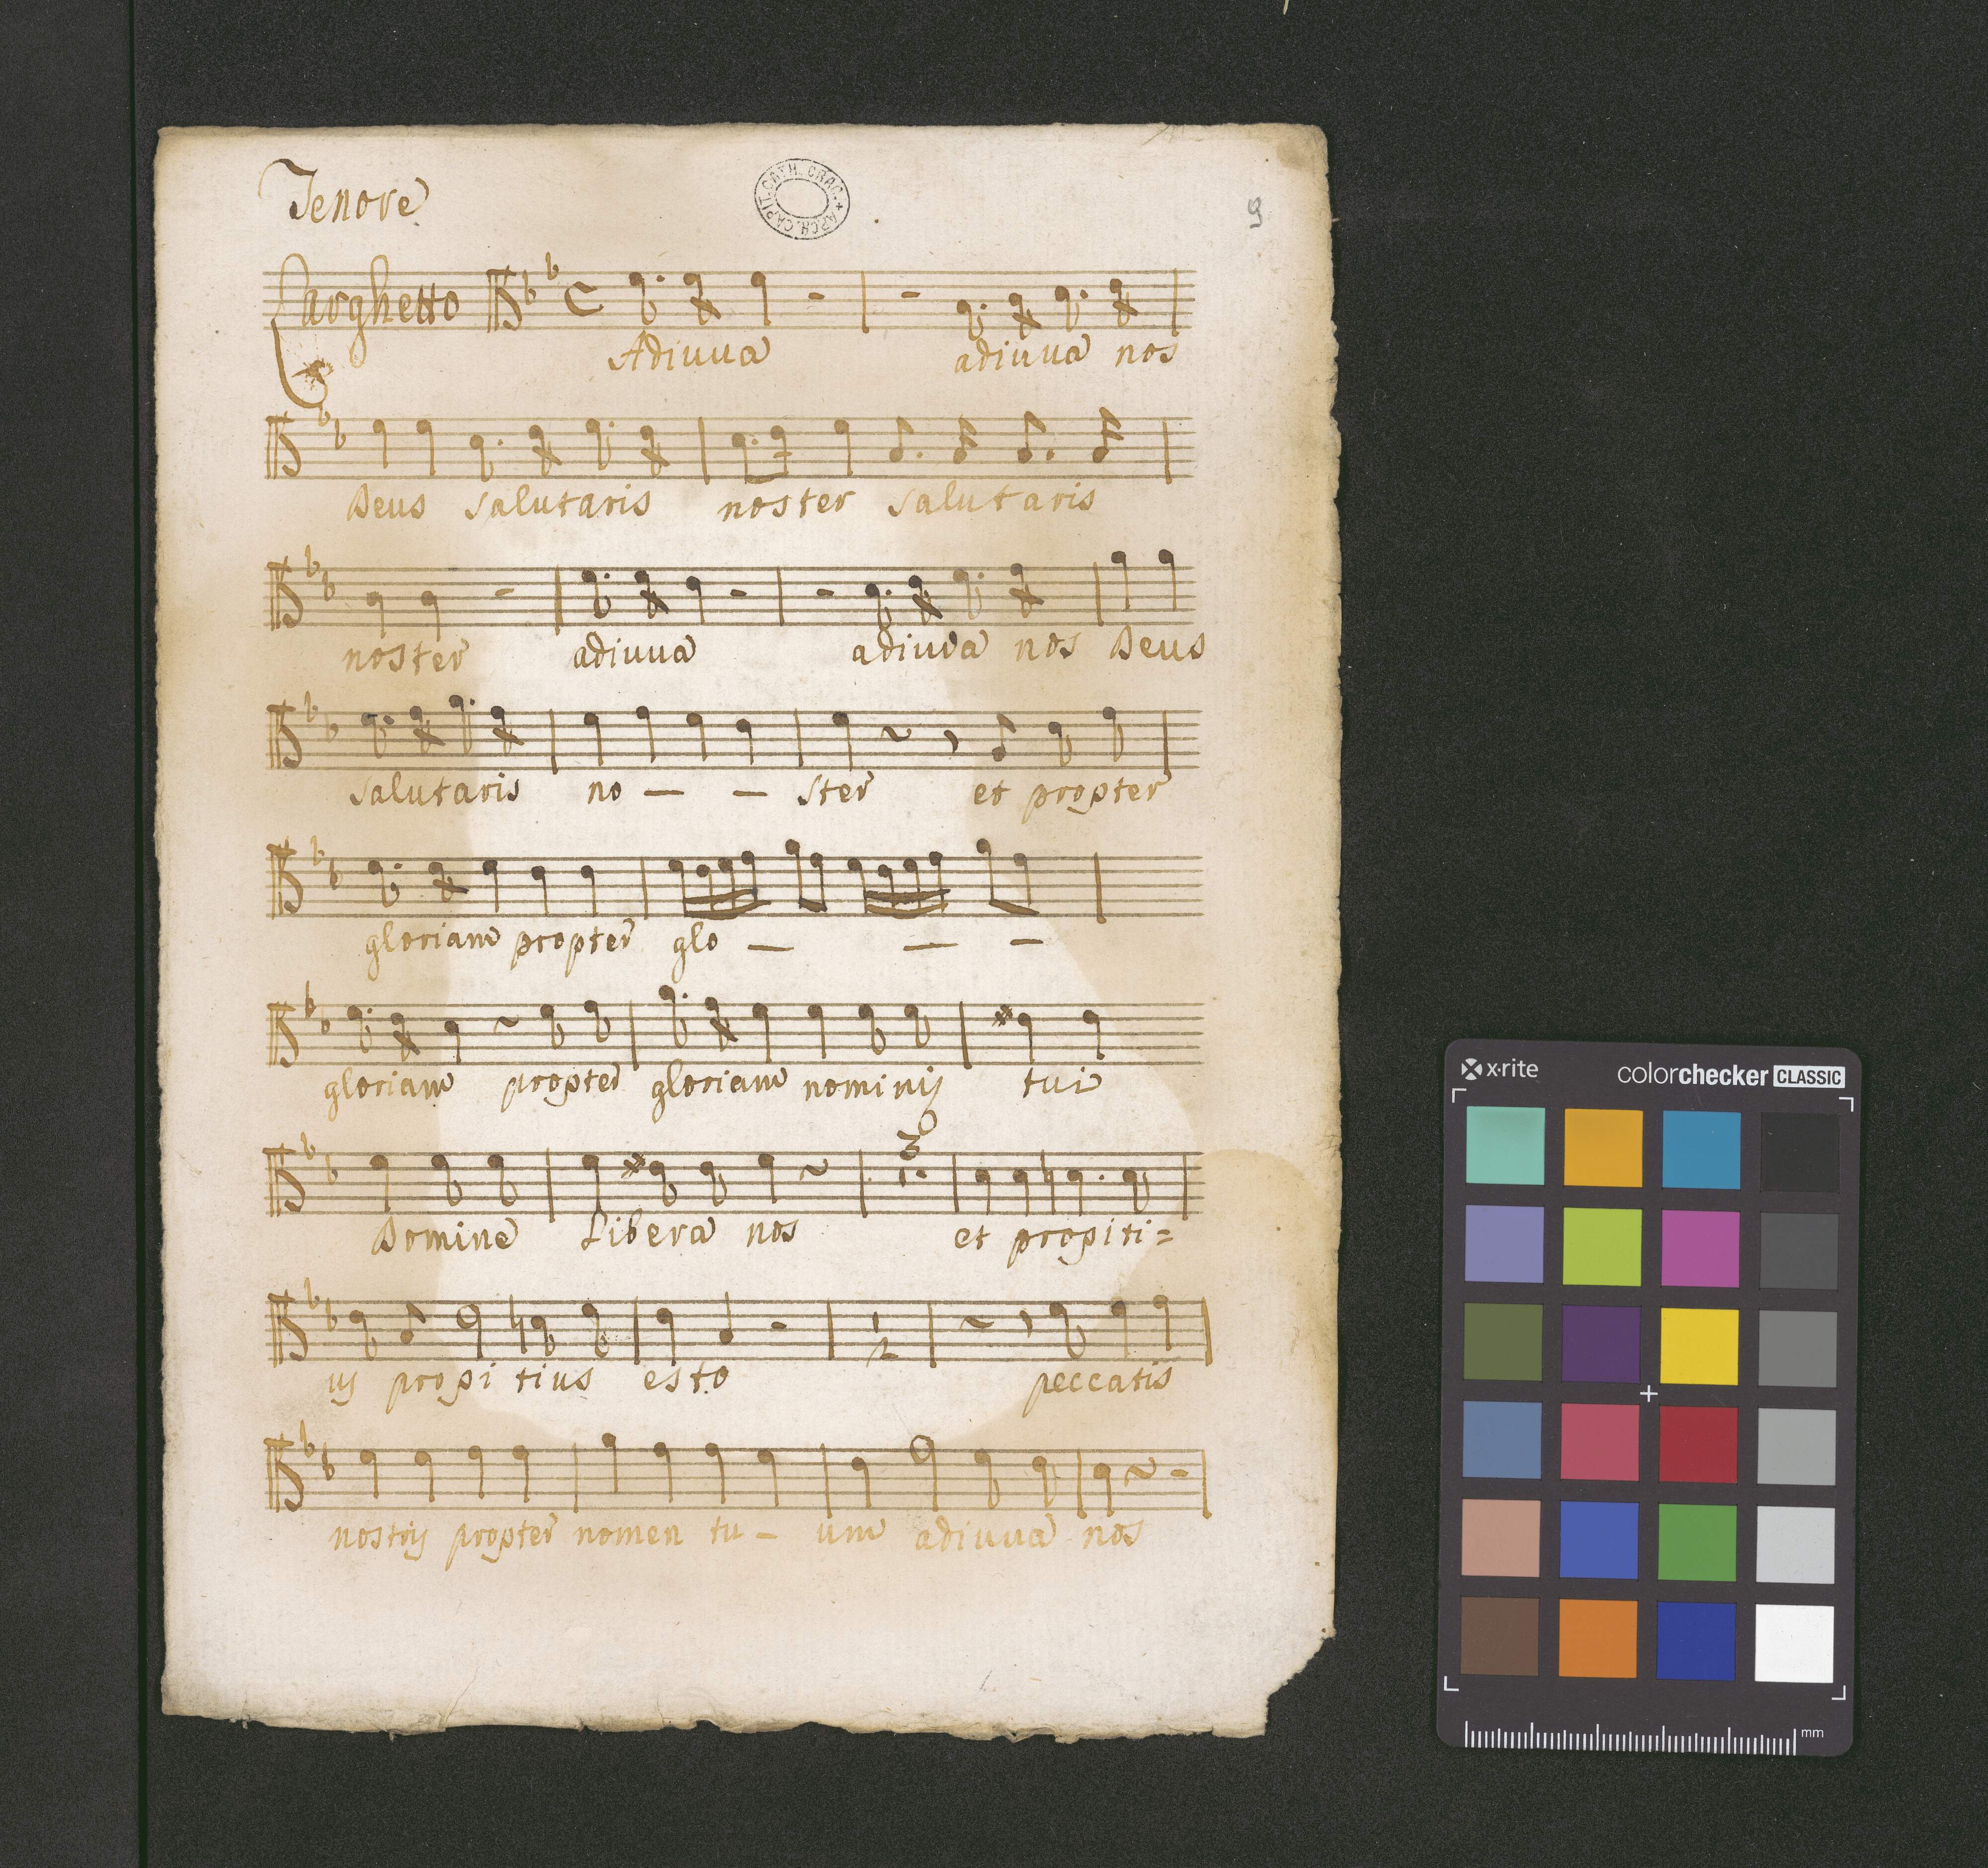 Tenore
ARCH. CAPIT. CATH. CRAC.
9
Larghetto
Adiuua adiuua nos
Deus salutaris noster salutaris
noster adiuua adiuva nos Deus
salutaris no — — ster et propter
gloriam propter glo — — —
gloriam propter gloriam nominij tui
3
Domine Libera nos et propiti=
2
ij propi tius esto peccatis
nostrij propter nomen tu — um adiuua nos
x·rite colorchecker CLASSIC
mm